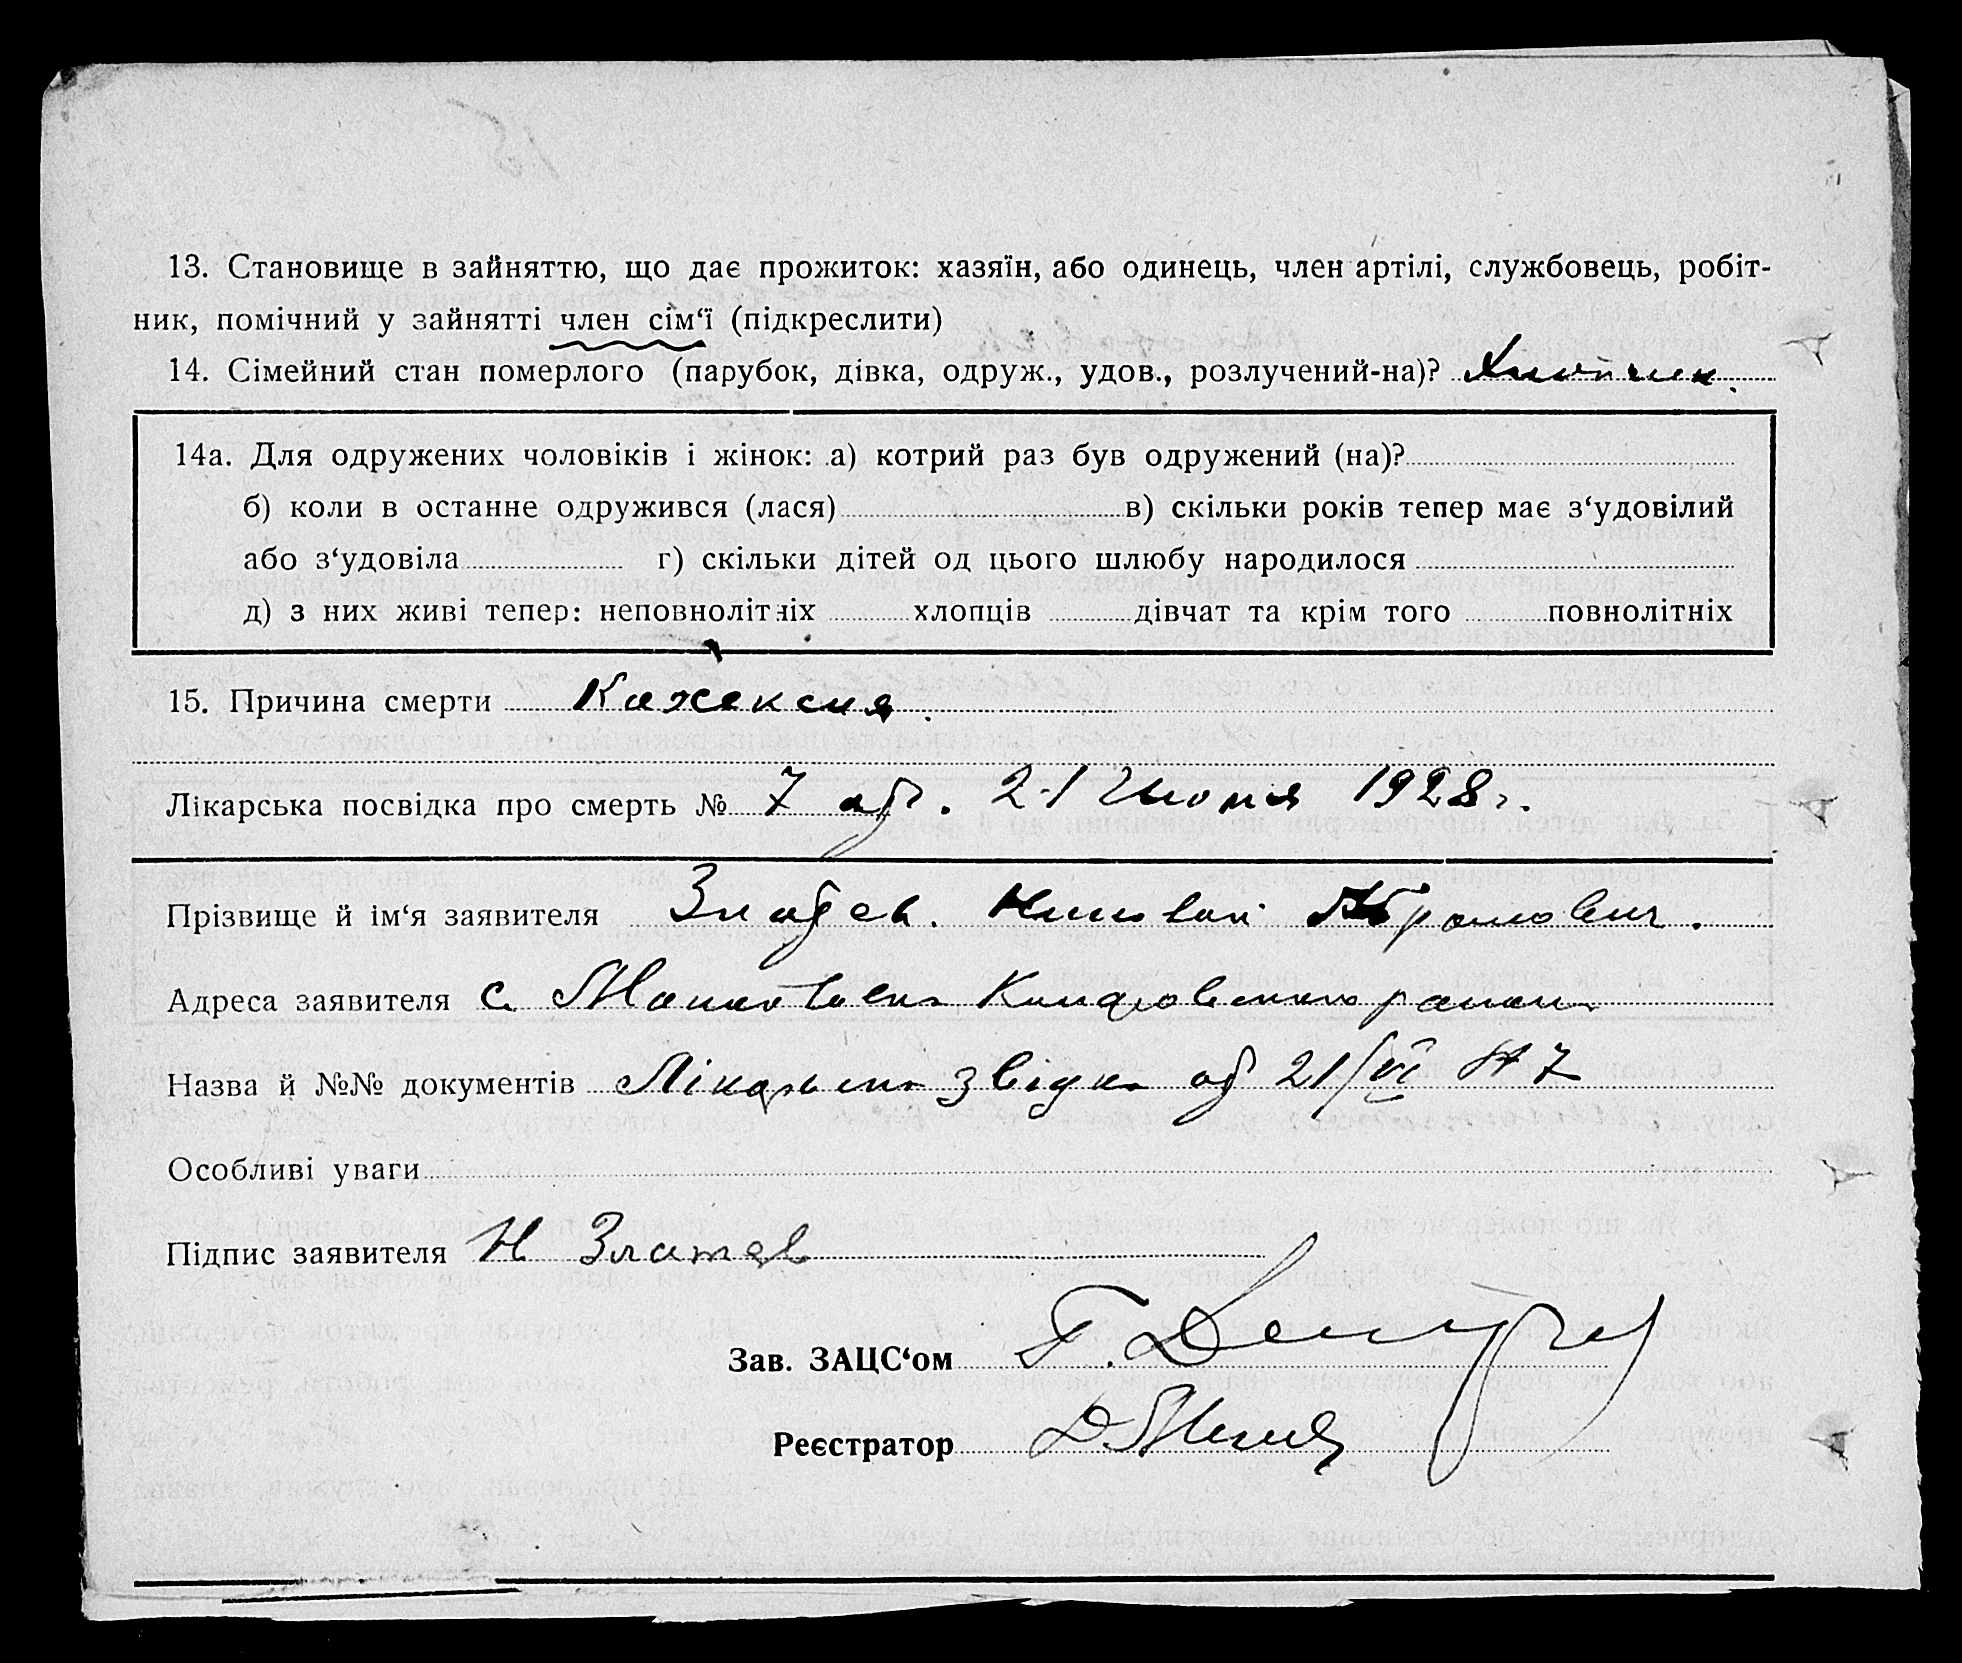 13. Становище в зайняттю, що дає прожиток: хазяїн, або одинець, член артілі, службовець, робіт-
ник, помічний у зайнятті член сім‘ї (підкреслити)
14. Сімейний стан померлого (парубок, дівка, одруж., удов., розлучений-на)? Хлопчик.
14а. Для одружених чоловіків і жінок: а) котрий раз був одружений (на)?
б) коли в останне одружився (лася) в) скільки років тепер має з‘удовілий
або з‘удовіла г) скільки дітей од цього шлюбу народилося
д) з них живі тепер: неповнолітніх хлопців дівчат та крім того повнолітніх
15. Причина смерти Кахексия.
Лікарська посвідка про смерть № 7 об. 21 Июня 1928 г.
Прізвище й ім‘я заявителя Николай
Адреса заявителя с.
Назва й №№ документів Лікарська звідка об 21/VI № 7
Особливі уваги
Підпис заявителя Н Златев
Зав. ЗАЦС‘ом Г.
Реєстратор Д.